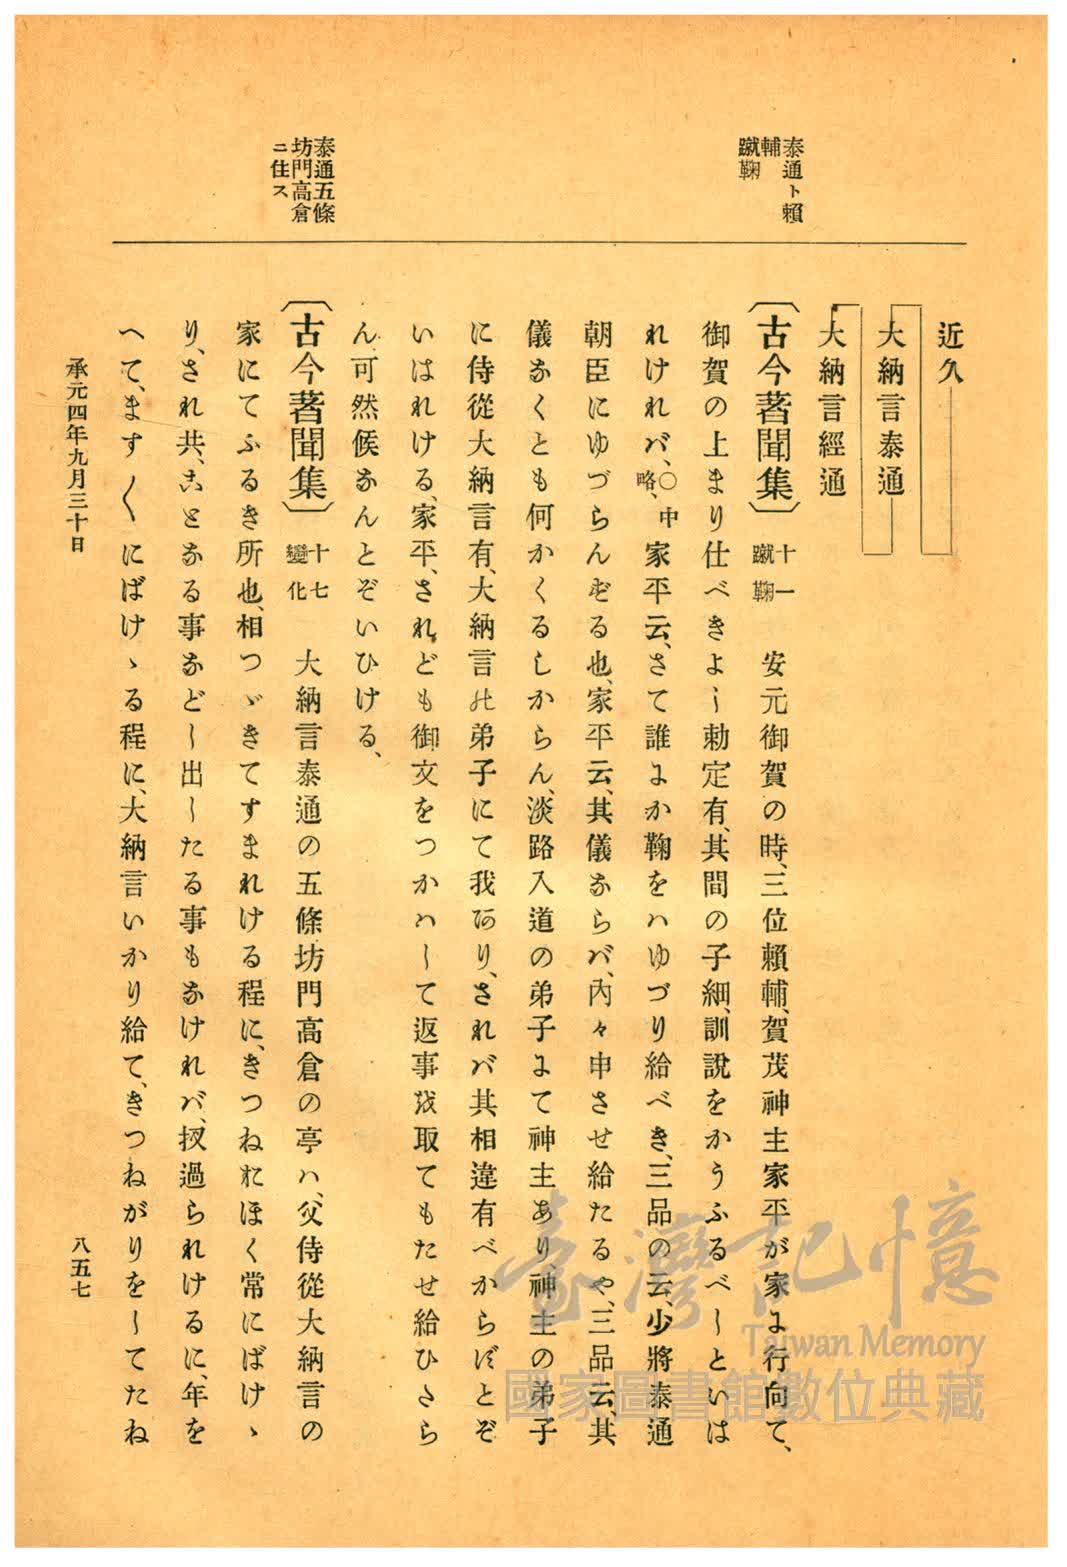 泰通ト賴
輔
蹴鞠
泰通五條
坊門高倉
ニ住ス
近久
大納言泰通
大納言經通
〔古今著聞集〕 十一 蹴鞠 安元御賀の時、三位賴輔、賀茂神主家平が家に行向て、
御賀の上まり仕べきよし勅定有、其間の子細、訓說をかうふるべしといは
れけれバ、〇中略、家平云、さて誰にか鞠をハゆづり給べき、三品の云、少將泰通
朝臣にゆづらんずる也、家平云、其儀ならバ、內々申させ給たるや、三品云、其
儀なくとも何かくるしからん、淡路入道の弟子にて神主あり、神主の弟子
に侍從大納言有、大納言の弟子にて我あり、されバ其相違有べからずとぞ
いはれける、家平、されども御文をつかハして返事を取てもたせ給ひさら
ん、可然候なんとぞいひける、
〔古今著聞集〕 十七 變化 大納言泰通の五條坊門高倉の亭ハ、父侍從大納言の
家にてふるき所也、相つゞきてすまれける程に、きつねおほく常にばけゝ
り、され共、ことなる事などし出したる事もなけれバ、扠過られけるに、年を
へて、ます〱にばけゝる程に、大納言いかり給て、きつねがりをしてたね
承元四年九月三十日
八五七
臺灣記憶
Taiwan Memory
國家圖書館數位典藏